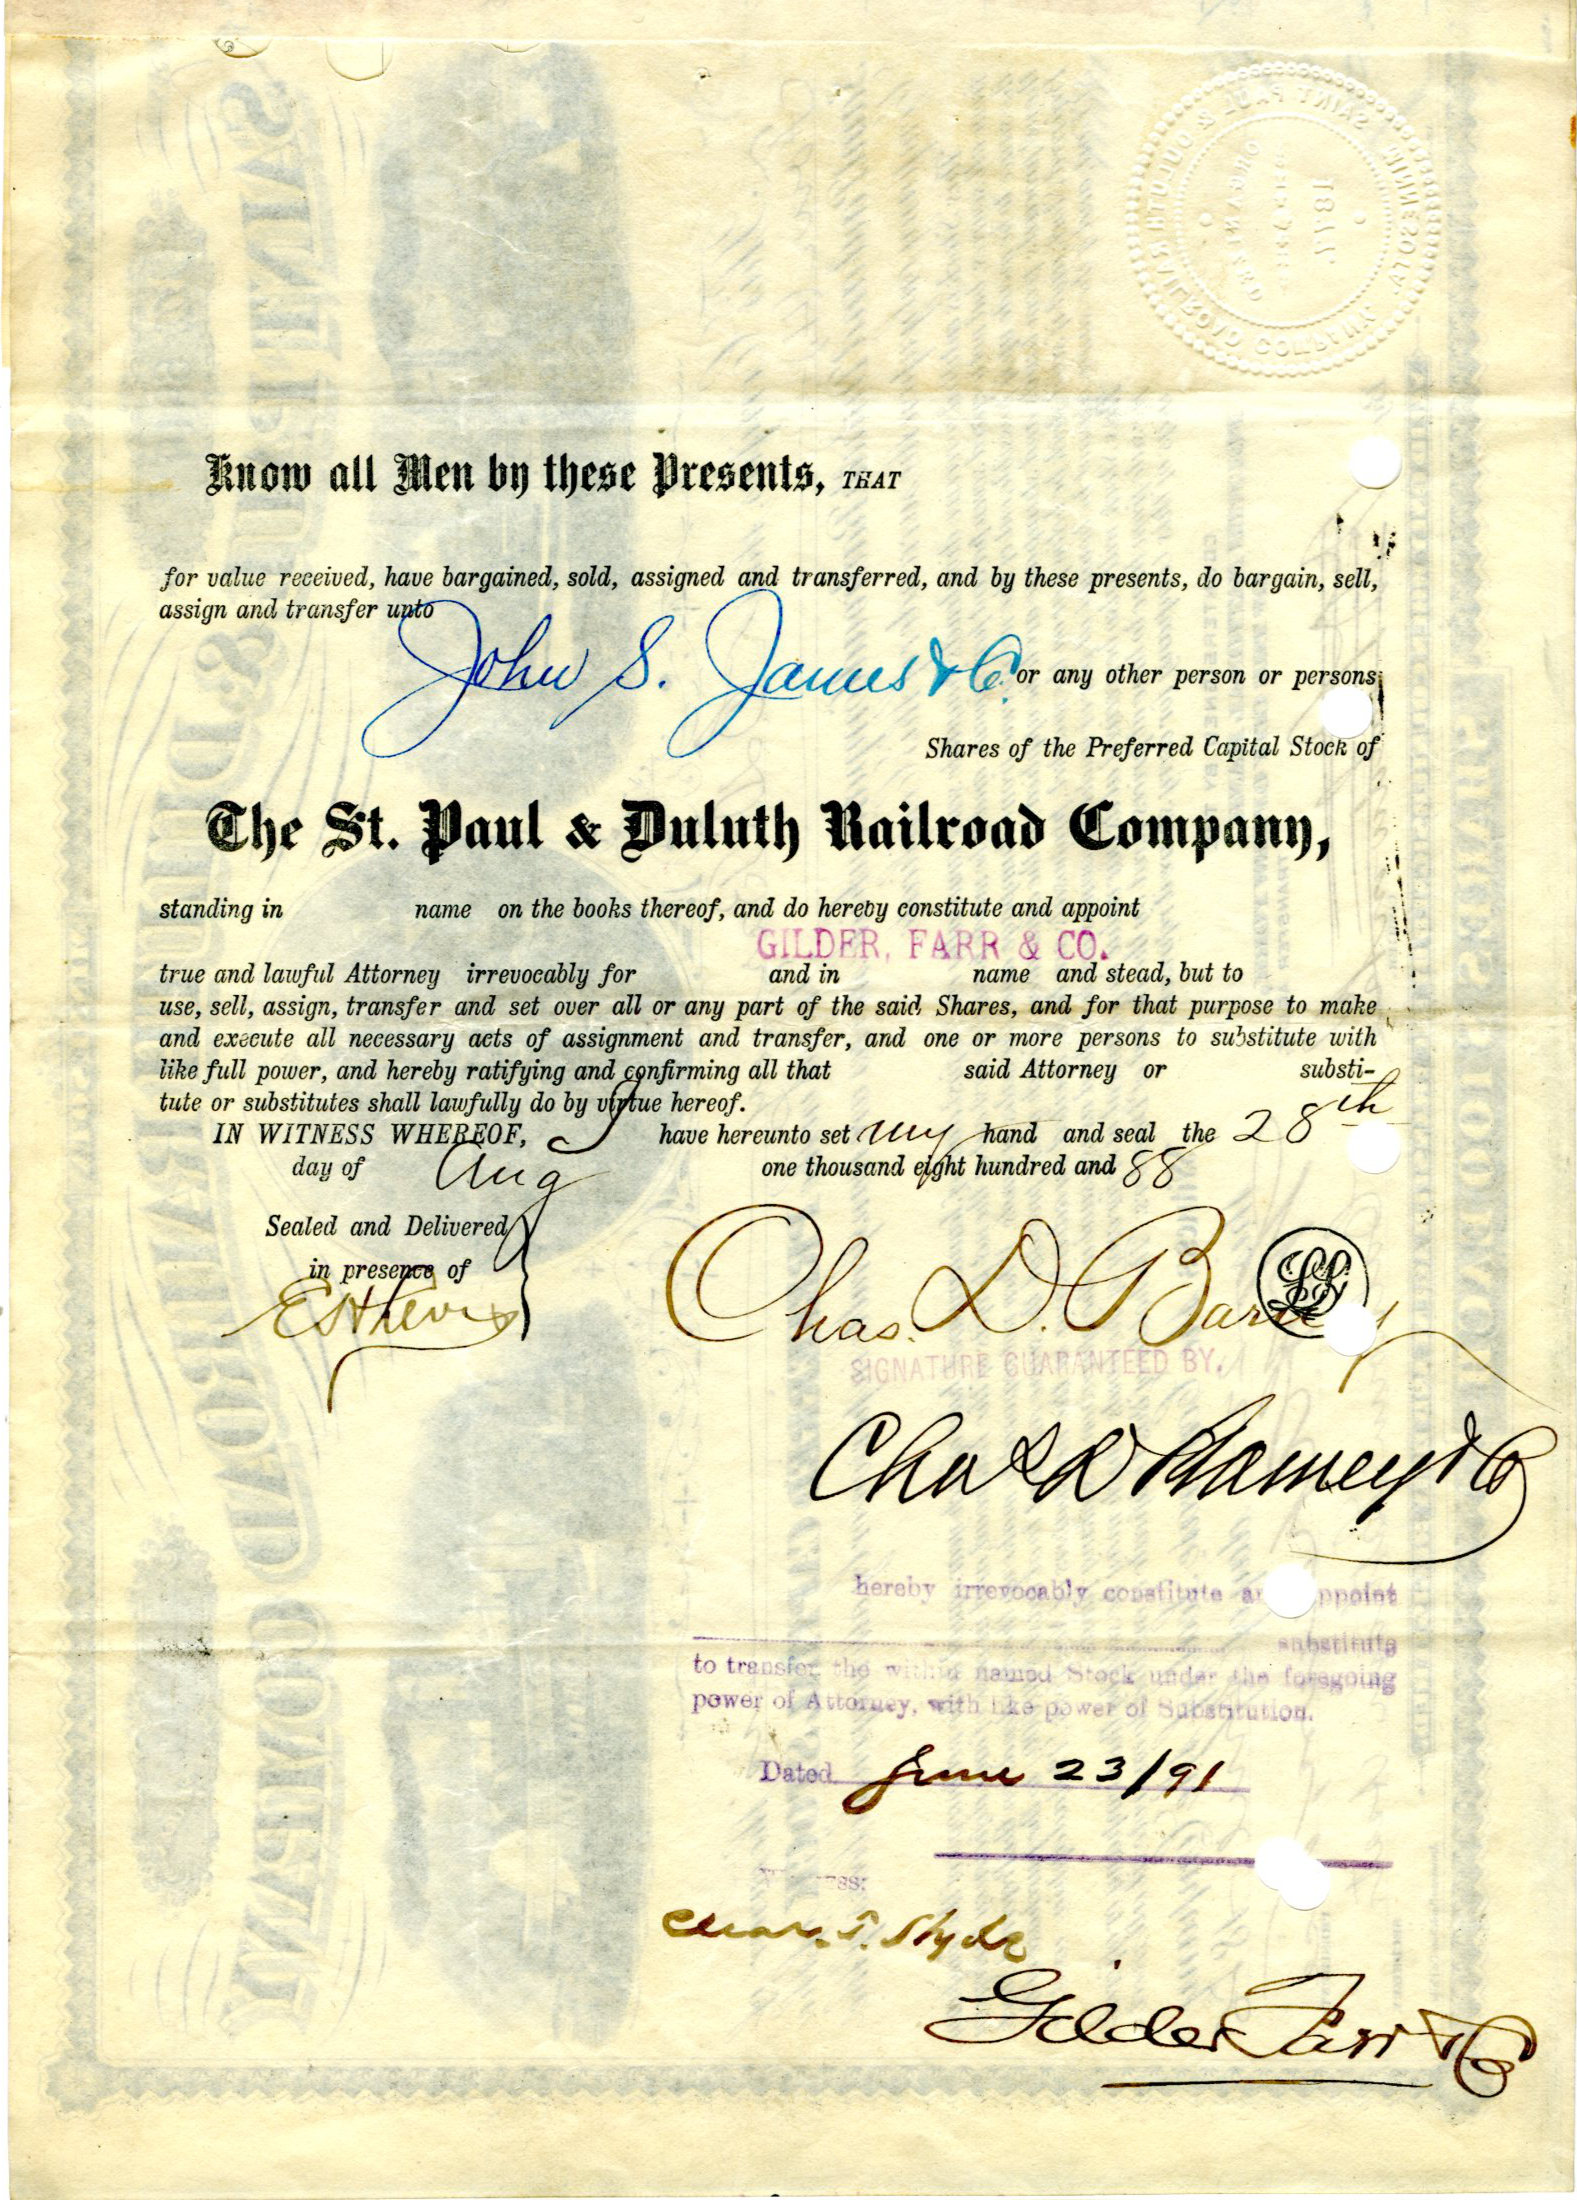 Know all Men by these Presents, THAT
for value received, have bargained, sold, assigned and transferred, and by these presents, do bargain, sell,
assign and transfer unto
John S. James & Co. or any other person or persons
Shares of the Preferred Capital Stock of
The St. Paul & Duluth Railroad Company,
standing in name on the books thereof, and do hereby constitute and appoint
GILDER, FARR & CO.
true and lawful Attorney irrevocably for and in name and stead, but to
use, sell, assign, transfer and set over all or any part of the said Shares, and for that purpose to make
and execute all necessary acts of assignment and transfer, and one or more persons to substitute with
like full power, and hereby ratifying and confirming all that said Attorney or substi-
tute or substitutes shall lawfully do by virtue hereof.
IN WITNESS WHEREOF, I have hereunto set my hand and seal the 28th
day of Aug one thousand eight hundred and 88
Sealed and Delivered
in presence of
Chas. D. Barney
SIGNATURE GUARANTEED BY.
Chas D Barney & Co
hereby irrevocably constitute and appoint
substitute
to transfer the within named Stock under the foregoing
power of Attorney, with like power of Substitution.
Dated June 23/91
Witness:
Gilder Farr & Co
SAINT PAUL & DULUTH RAILROAD COMPANY
MINNESOTA
ORGANIZED
1877